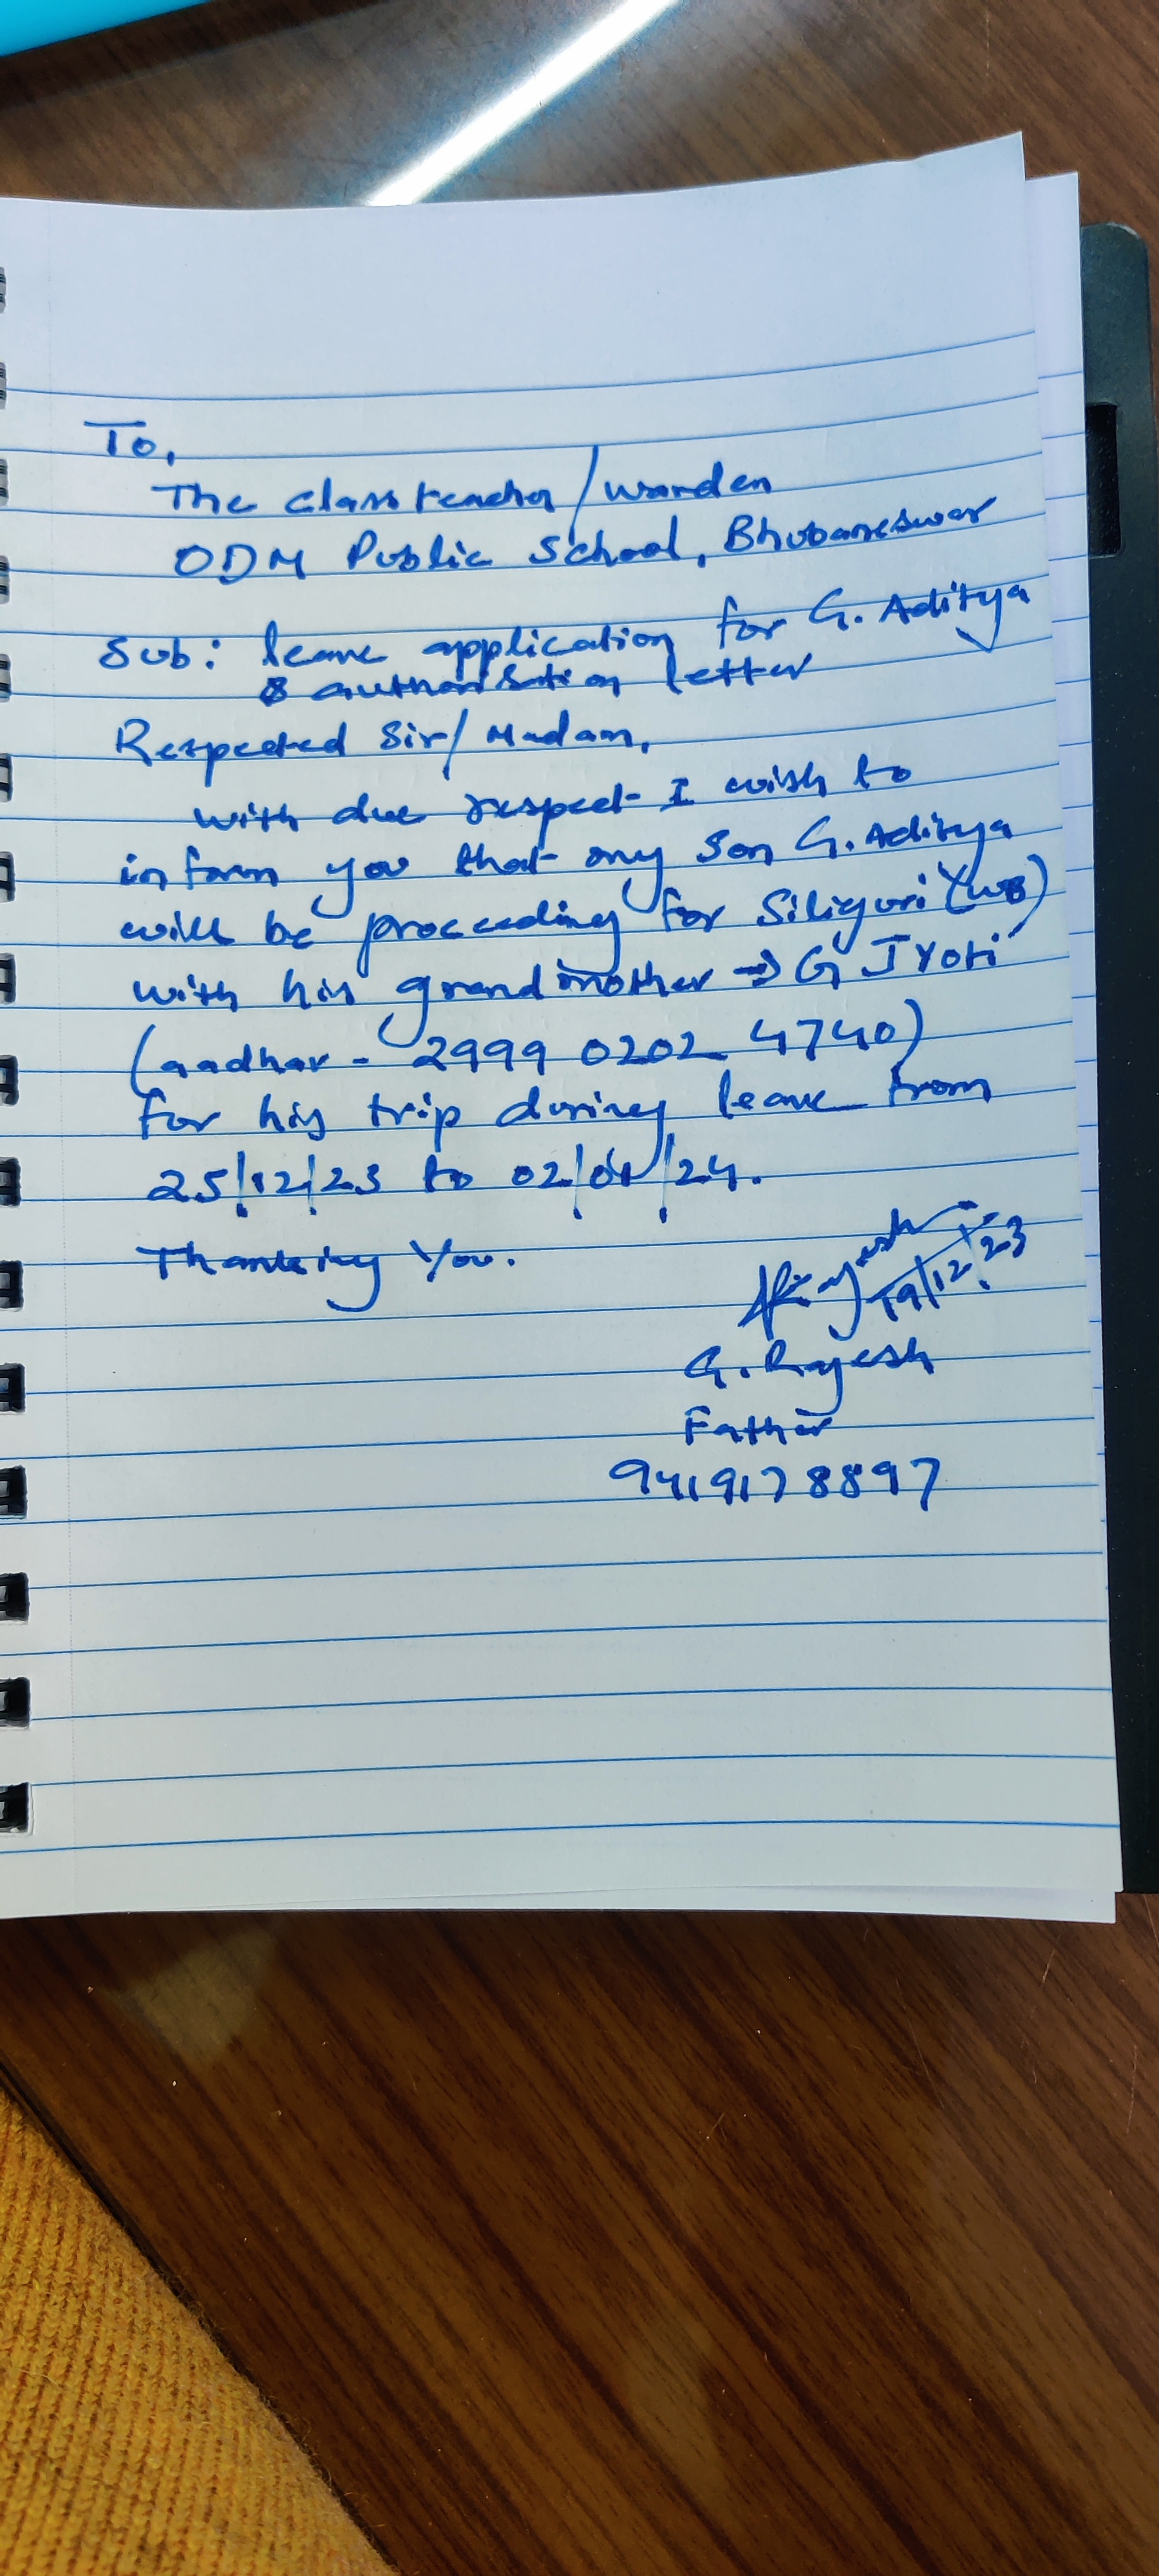 To,
The class teacher / warden
ODM Public School, Bhubaneswar
Sub: leave application for G. Aditya
& authorisation letter
Respected Sir/Madam,
with due respect I wish to
inform you that my son G. Aditya
will be proceeding for Siliguri (WB)
with his grandmother → G Jyoti
(aadhar - 2999 0202 4740)
for his trip during leave from
25/12/23 to 02/01/24.
Thanking You.
Rajesh 19/12/23
G. Rajesh
Father
9419178897